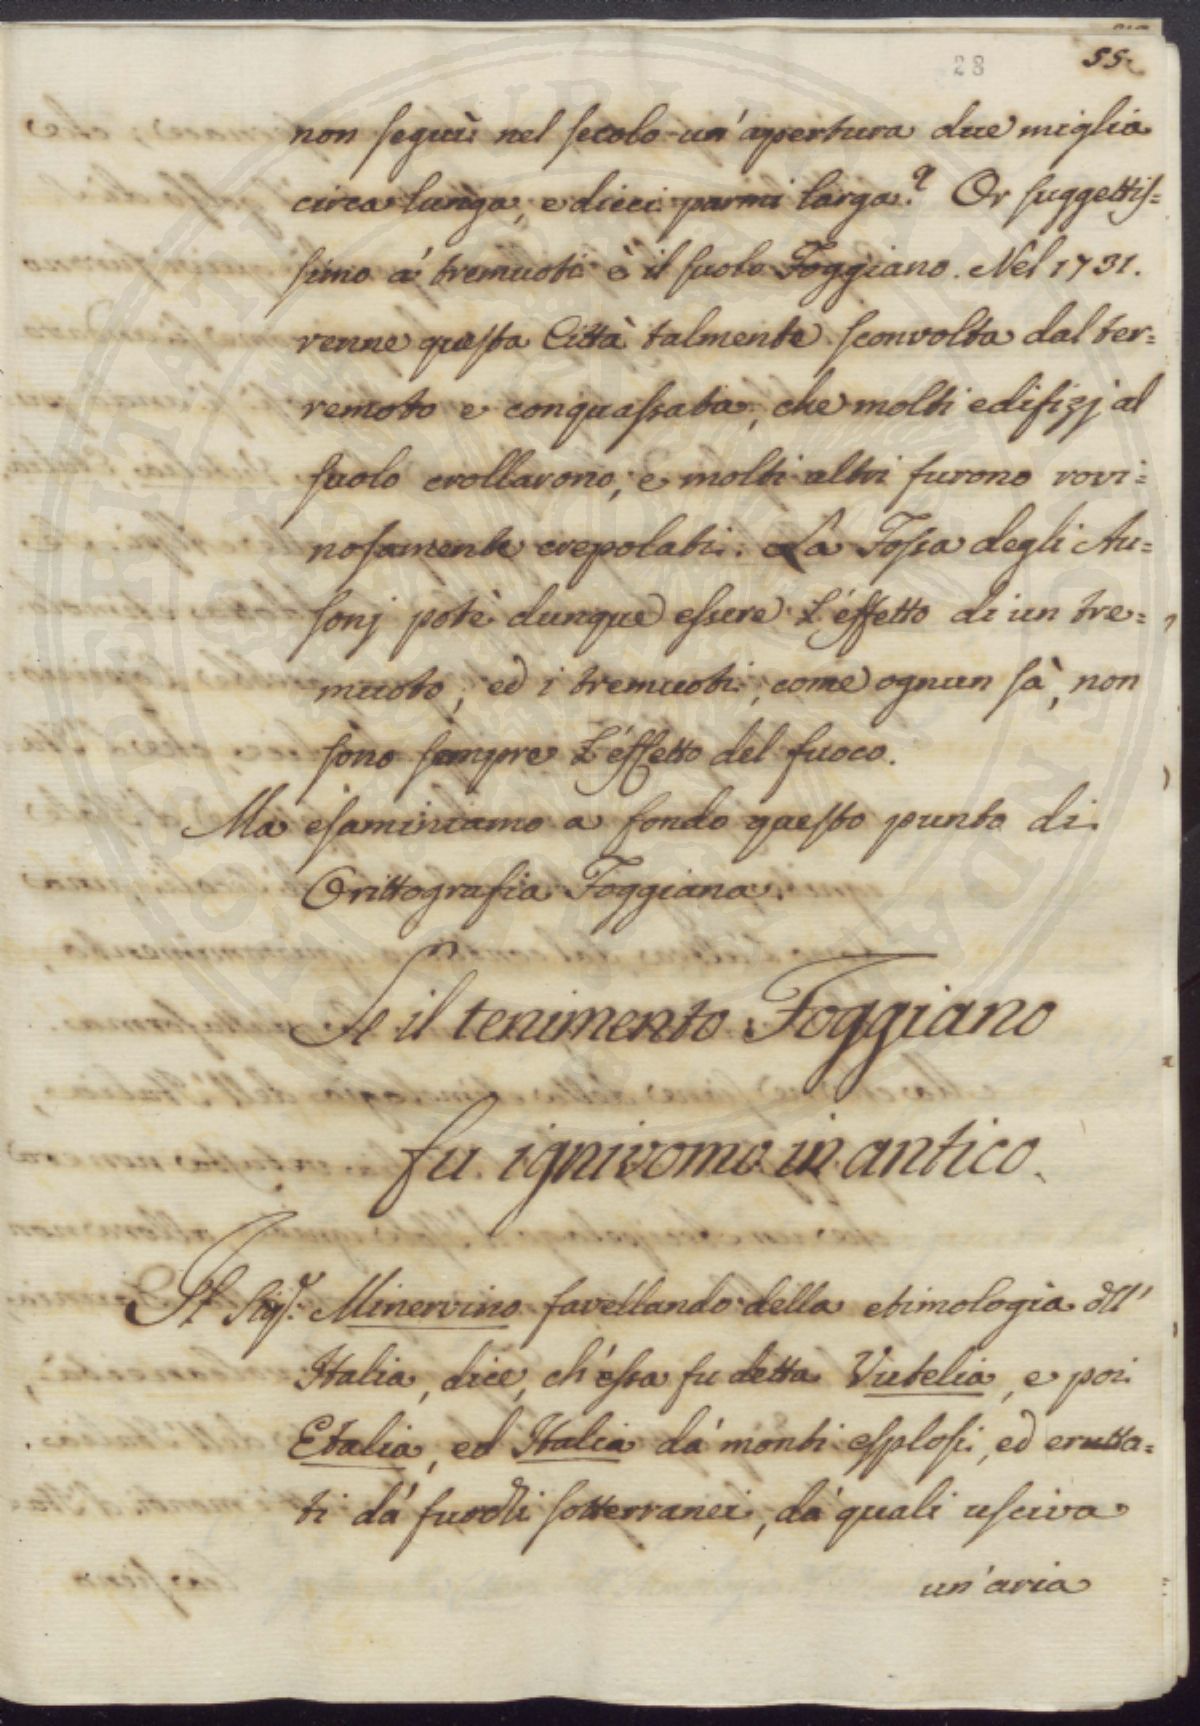 28
55.
non seguì nel secolo un'apertura due miglia
circa lunga, e dieci parmi larga? Or suggettis=
simo á tremuoti è il suolo Foggiano. Nel 1731.
venne questa Città talmente sconvolta dal ter=
remoto e conquassata, che molti edifizj al
suolo crollarono, e molti altri furono rovi=
nosamente crepolati. La Fossa degli Au=
sonj potè dunque essere l'effetto di un tre=
muoto, ed i tremuoti, come ognun sà, non
sono sempre l'effetto del fuoco.
Ma esaminiamo a fondo questo punto di
Orittografia Foggiana.
Se il tenimento Foggiano
fu ignivomo in antico.
Il Sig.r Minervino favellando della etimologia dll'
Italia, dice, ch'essa fu detta Vitelia, e poi
Etalia, ed Italia dá monti esplosi, ed erutta=
ti dá furolli sotterranei, dá quali usciva
un'aria